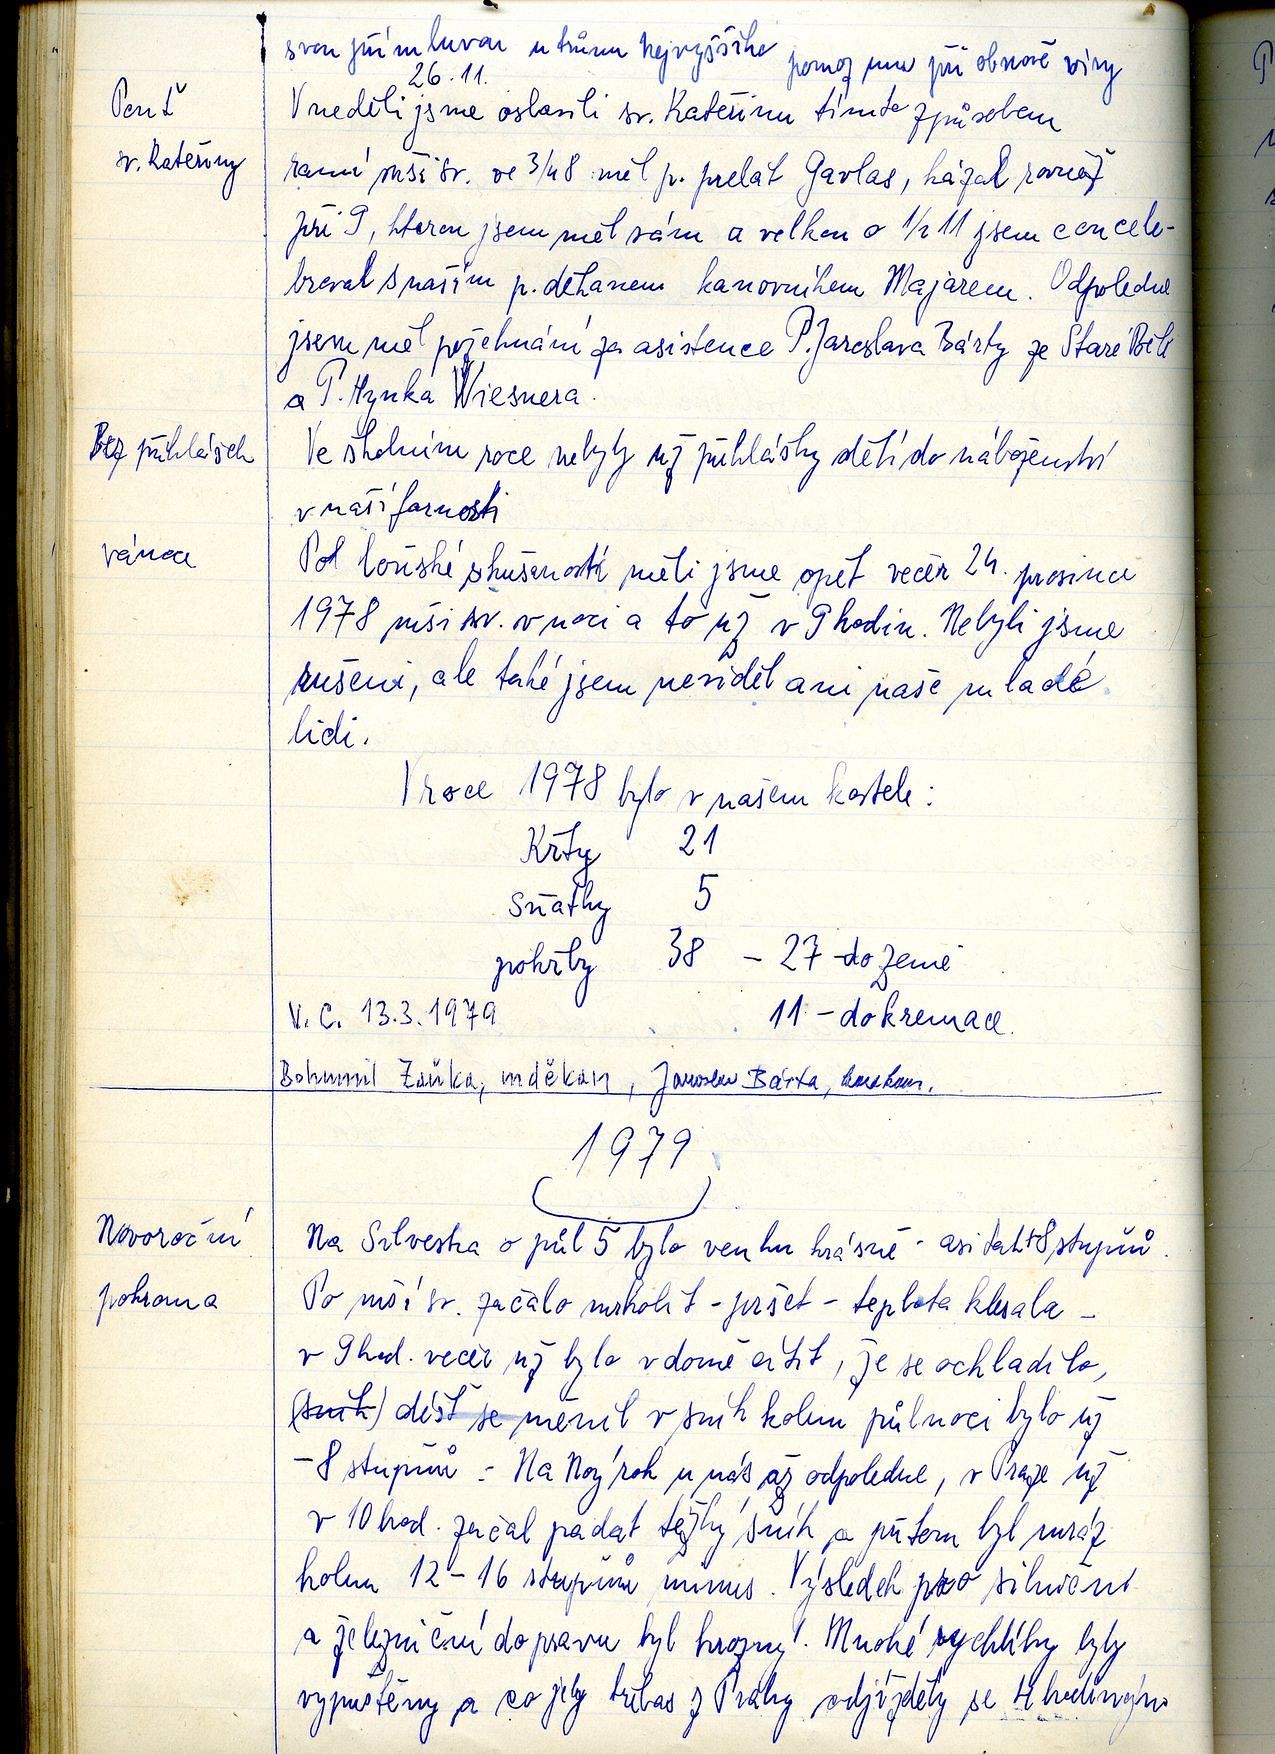 svou přímluvou u trůnu Nejvyššího pomoz mu při obnově víry
26.11.
Pouť
sv. Kateřiny
V neděli jsme oslavili sv. Kateřinu tímto způsobem
ranní mši sv. ve 3/4 8 měl p. prelát Gavlas, kázal rovněž
při 9, kterou jsem měl sám a velkou o 1/2 11 jsem concele-
broval s naším p. děkanem kanovníkem Majarem. Odpoledne
jsem měl požehnání za asistence P. Jaroslava Bárty ze Staré Bělé
a P. Hynka Wiesnera.
Bez přihlášek
Ve školním roce nebyly už přihlášky dětí do náboženství
v naší farnosti
vánoce
Pol loňské skušenosti měli jsme opět večer 24. prosince
1978 mši sv. v noci a to už v 9 hodin. Nebyli jsme
rušeni, ale také jsem neviděl ani naše mladé
lidi.
V roce 1978 bylo v našem kostele:
Křty 21
sňatky 5
pohřby 38 – 27 do země
V. C. 13.3.1979 11 – do kremace.
Bohumil Zaňka, děkan, Jaroslav Bárta,
1979
Novoroční
pohroma
Na Silvestra o půl 5 bylo venku krásně - asi tak +8 stupňů.
Po mši sv. začalo mrholit - pršet - teplota klesala –
v 9 hod. večer už bylo v domě cítit, že se ochladilo,
(sníh) déšť se měnil v sníh kolem půlnoci bylo už
-8 stupňů - Na Nový rok u nás až odpoledne, v Praze už
v 10 hod. začal padat těžký sníh a přitom byl mráz
kolem 12 – 16 stupňů minus. Výsledek pro silniční
a železniční dopravu byl hrozný. Mnohé rychlíky byly
vypuštěny a co jely třebas z Prahy odjížděly se